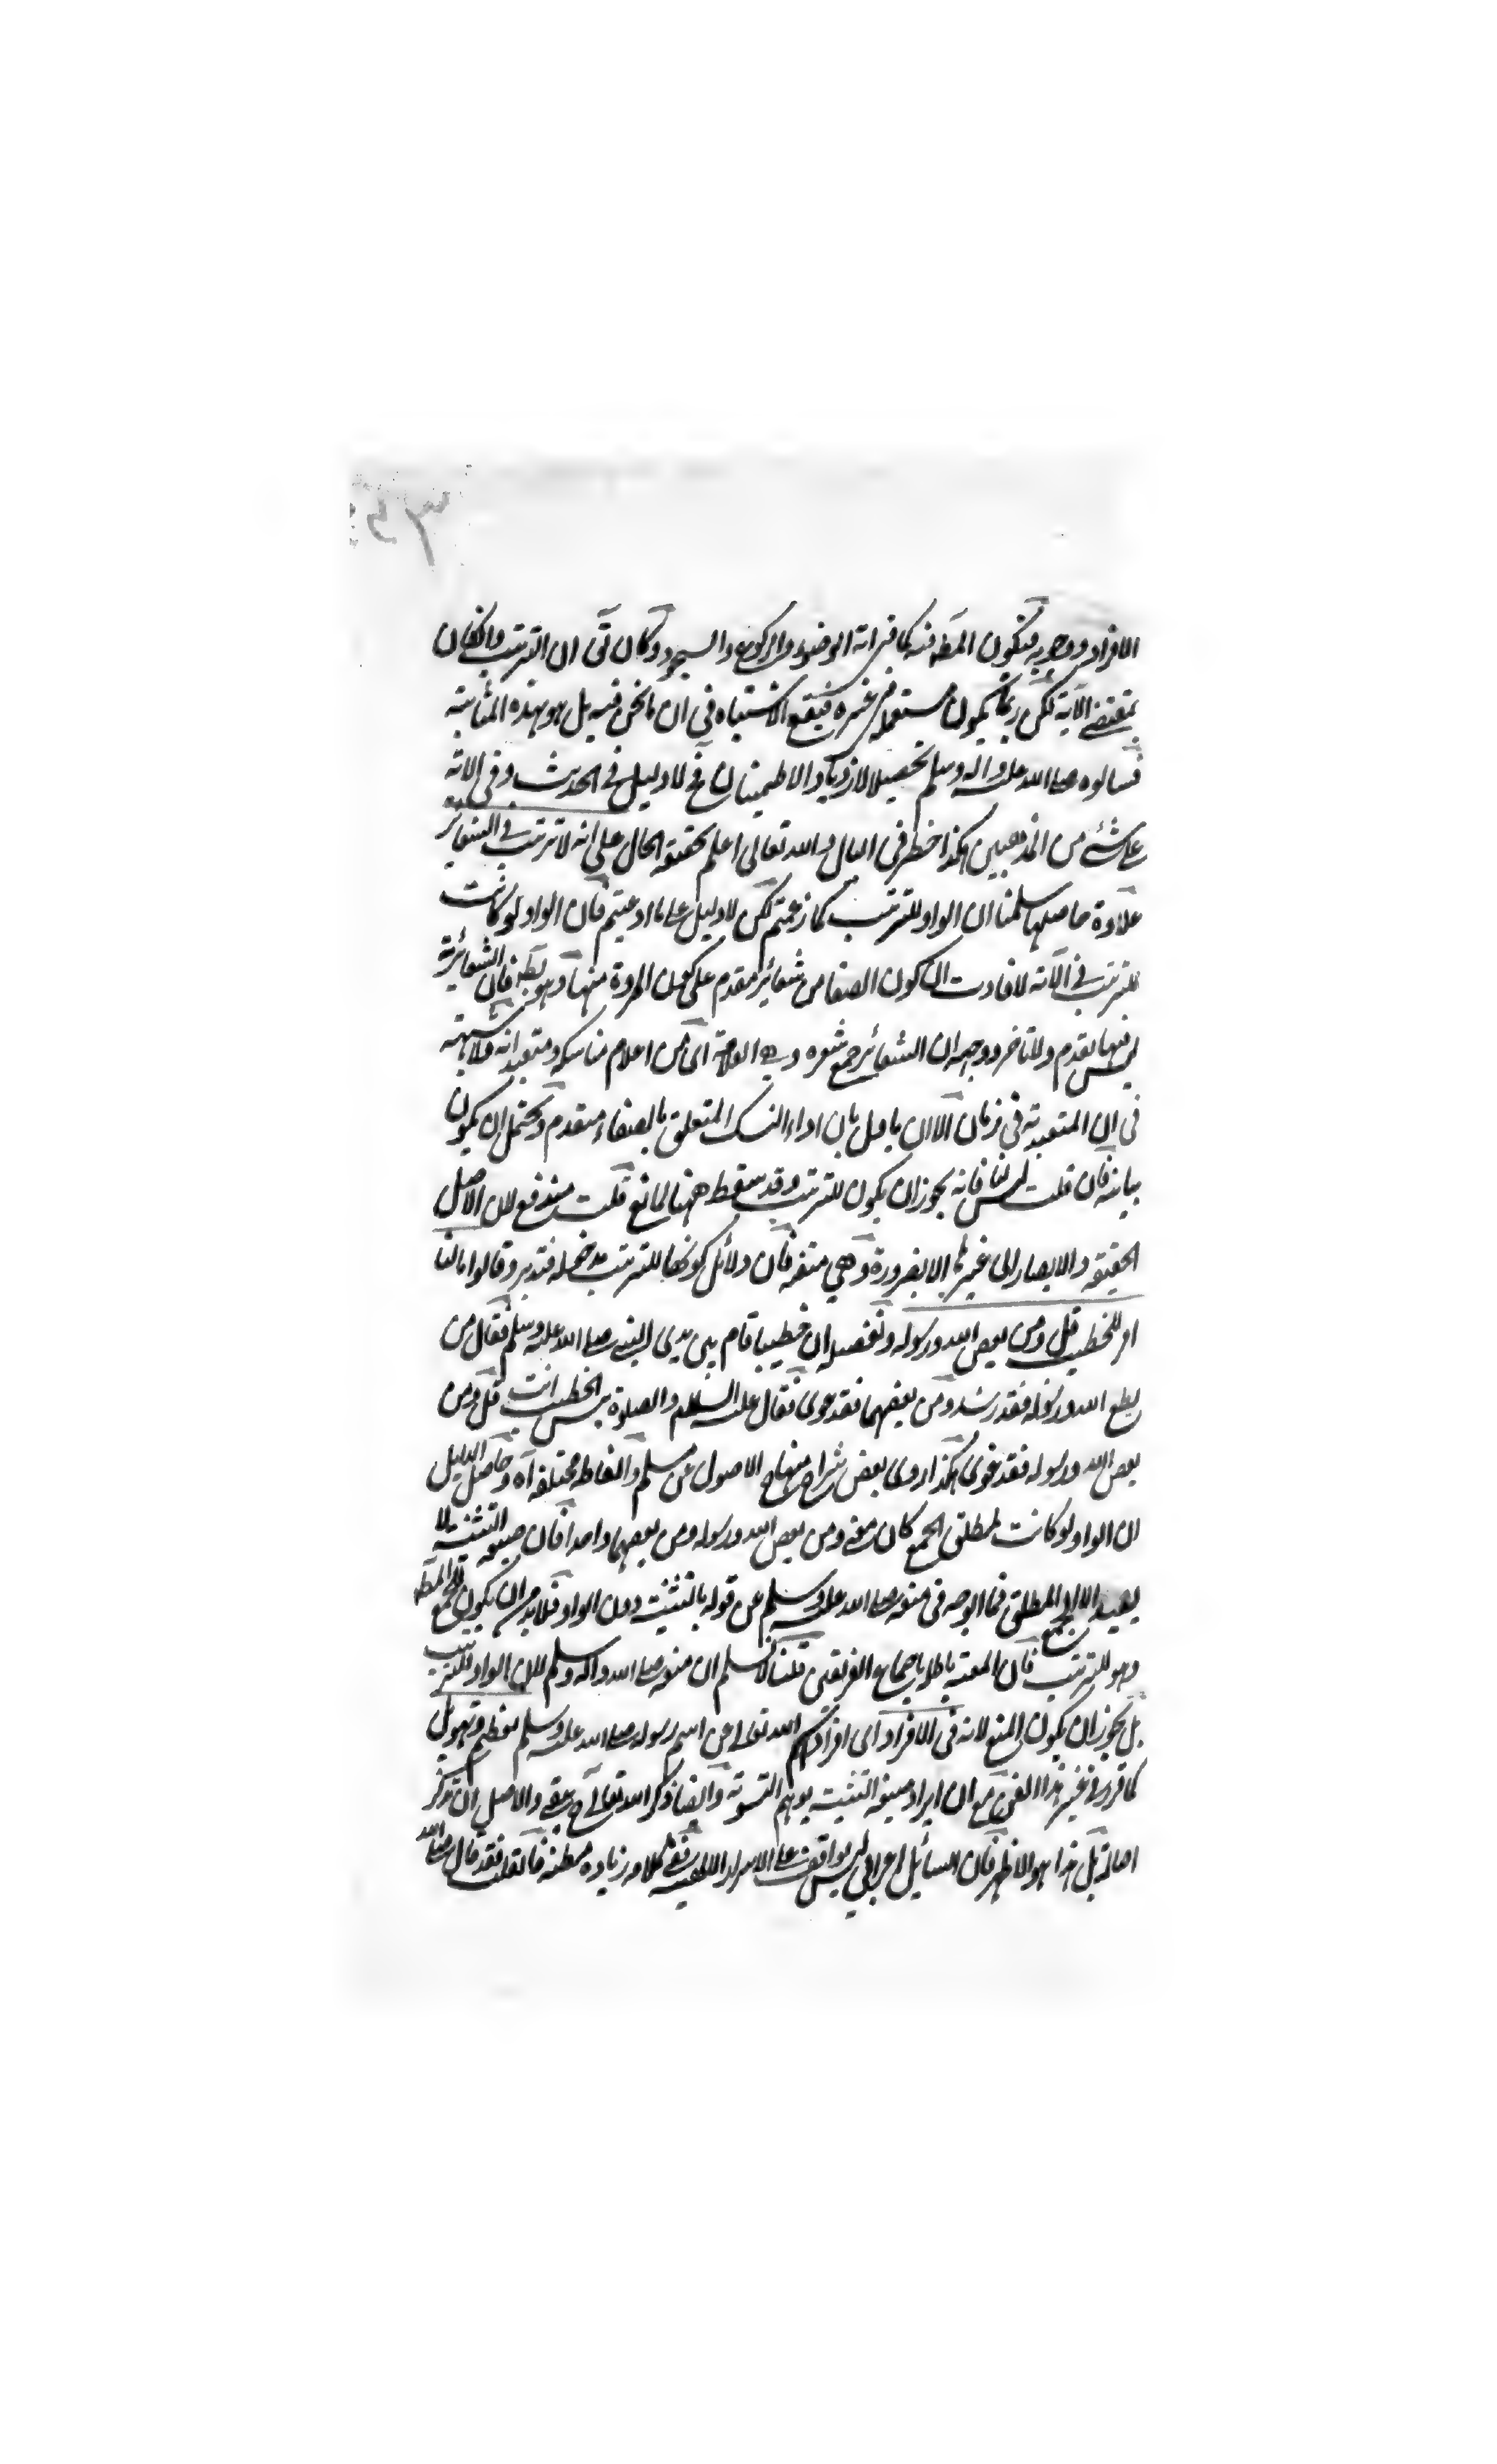 الافراد ووجوبه فيكون المظنه كما في اية الوضوء والركوع والسجود وكان ان الترتيب وان كان
بمقتضى الآية لكن ربما يكون مستعملا في غيره فيقع الاشتباه في ان ما نحن فيه بل هو بهذه المثابة
فسالوه صلى الله عليه واله وسلم تحصيلا لازدياد الاطمينان فح لا دليل في الحديث وفي الاية
على شئ من المذهبين هكذا خطر في البال والله تعالى اعلم بحقيقة الحال على انه لا ترتيب في الشعائر
علاوة حاصلها سلمنا ان الواو للترتيب كما زعمتم لكن لا دليل على ما ادعيتم فان الواو لو كانت
للترتيب في الآية لافادت ان كون الصفا من شعائر مقدم على كون المروة منها وهو بط فان الشعائرية
ليس فيها تقدم ولا تاخر ووجهه ان الشعائر جمع شعيره وهي العلامة اى من اعلام مناسكه ومتعبداته ولا شبهة
في ان المتعبدية في زمان الآن يا قبل بان اداء النسك المتعلق بالصفاء متقدم ويحتمل ان يكون
بيانه فان قلت ليس لنا فانه يجوز ان يكون للترتيب وقد سقط ههنا لمانع قلت مندفع لان الاصل
الحقيقه والابصار الى غيرها الا بضرورة وهي منتفية فان دلائل كونها للترتيب مدخوله فتدبر وقالوا ثالثا
امر للخطيب قل ومن يعص الله ورسوله وتفصيله ان خطيبا قام بين يدى النبي صلى الله عليه وسلم فقال من
يطع الله ورسوله فقد رشد ومن يعصهما فقد غوى فقال عليه السلام والصلوة بئس الخطيب انت قل ومن
يعص الله ورسوله فقد غوى هكذا روى بعض شراح منهاج الاصول عن مسلم والفاظه مختلفة اه وحاصل الدليل
ان الواو لو كانت لمطلق الجمع كان معنى ومن يعص الله ورسوله ومن يعصهما واحدا فان صيغة التثنية لا
يفيد الا الجمع المطلق فما الوجه في منعه صلى الله عليه وسلم عن قوله بالتثنية دون الواو فلا بد من ان يكون للجمع المظ
وهو للترتيب فان المعية باطل باجماع الفريقين قلنا لا نسلم ان منعه صلى الله واله وسلم لان الواو للترتيب
بل يجوز ان يكون المنع لانه في الافراد اى افراد اسم الله تعالى عن اسم رسوله صلى الله عليه وسلم تعظيم وتهويل
كما قرر في غير هذا الفن مع ان ايراد صيغة التثنية يوهم التسوية وايضا ذكر الله تعالى والاصل ان تذكر
اصالة بل هذا هو الاظهر فان السائل اعرابي ليس بواقف على الاسرار الالهية ففي كلامه زيادة مظنة فان قلت فقد قال صلى الله